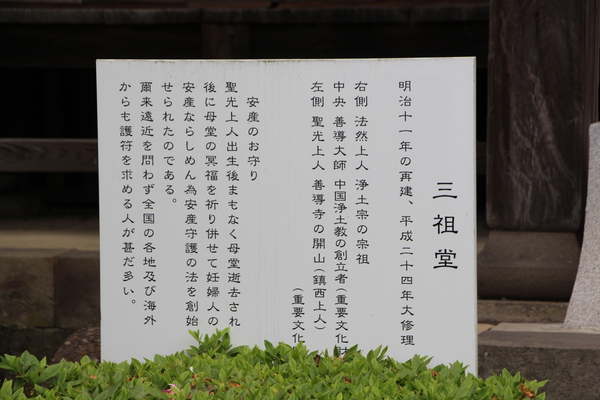 三祖堂
明治十一年の再建、平成二十四年大修理
右側 法然上人 浄土宗の宗祖
中央 善導大師 中国浄土教の創立者(重要文化財
左側 聖光上人 善導寺の開山(鎮西上人)
(重要文化
安産のお守り
聖光上人出生後まもなく母堂逝去され
後に母堂の冥福を祈り併せて妊婦人の
安産ならしめん為安産守護の法を創始
せられたのである。
爾来遠近を問わず全国の各地及び海外
からも護符を求める人が甚だ多い。